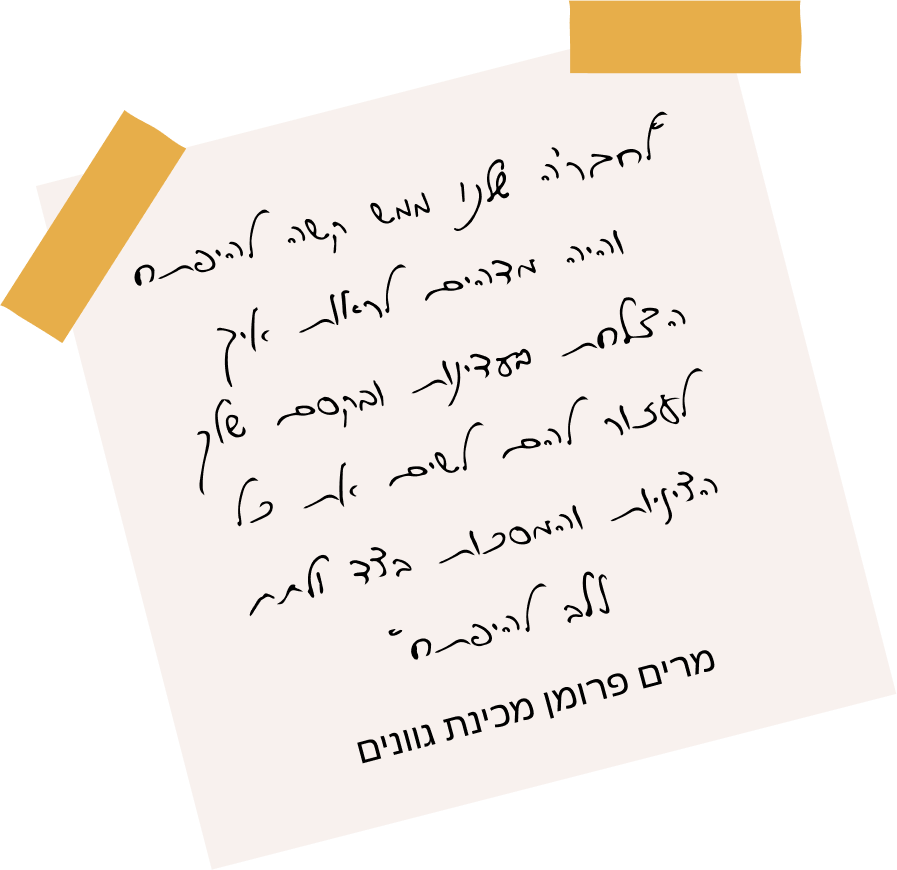 "לחבר'ה שלנו ממש קשה להיפתח
והיה מדהים לראות איך
הצלחת בעדינות ובקסם שלך
לעזור להם לשים את כל
הציניות והמסכות בצד ולתת
ללב להיפתח"
מרים פרומן מכינת גוונים